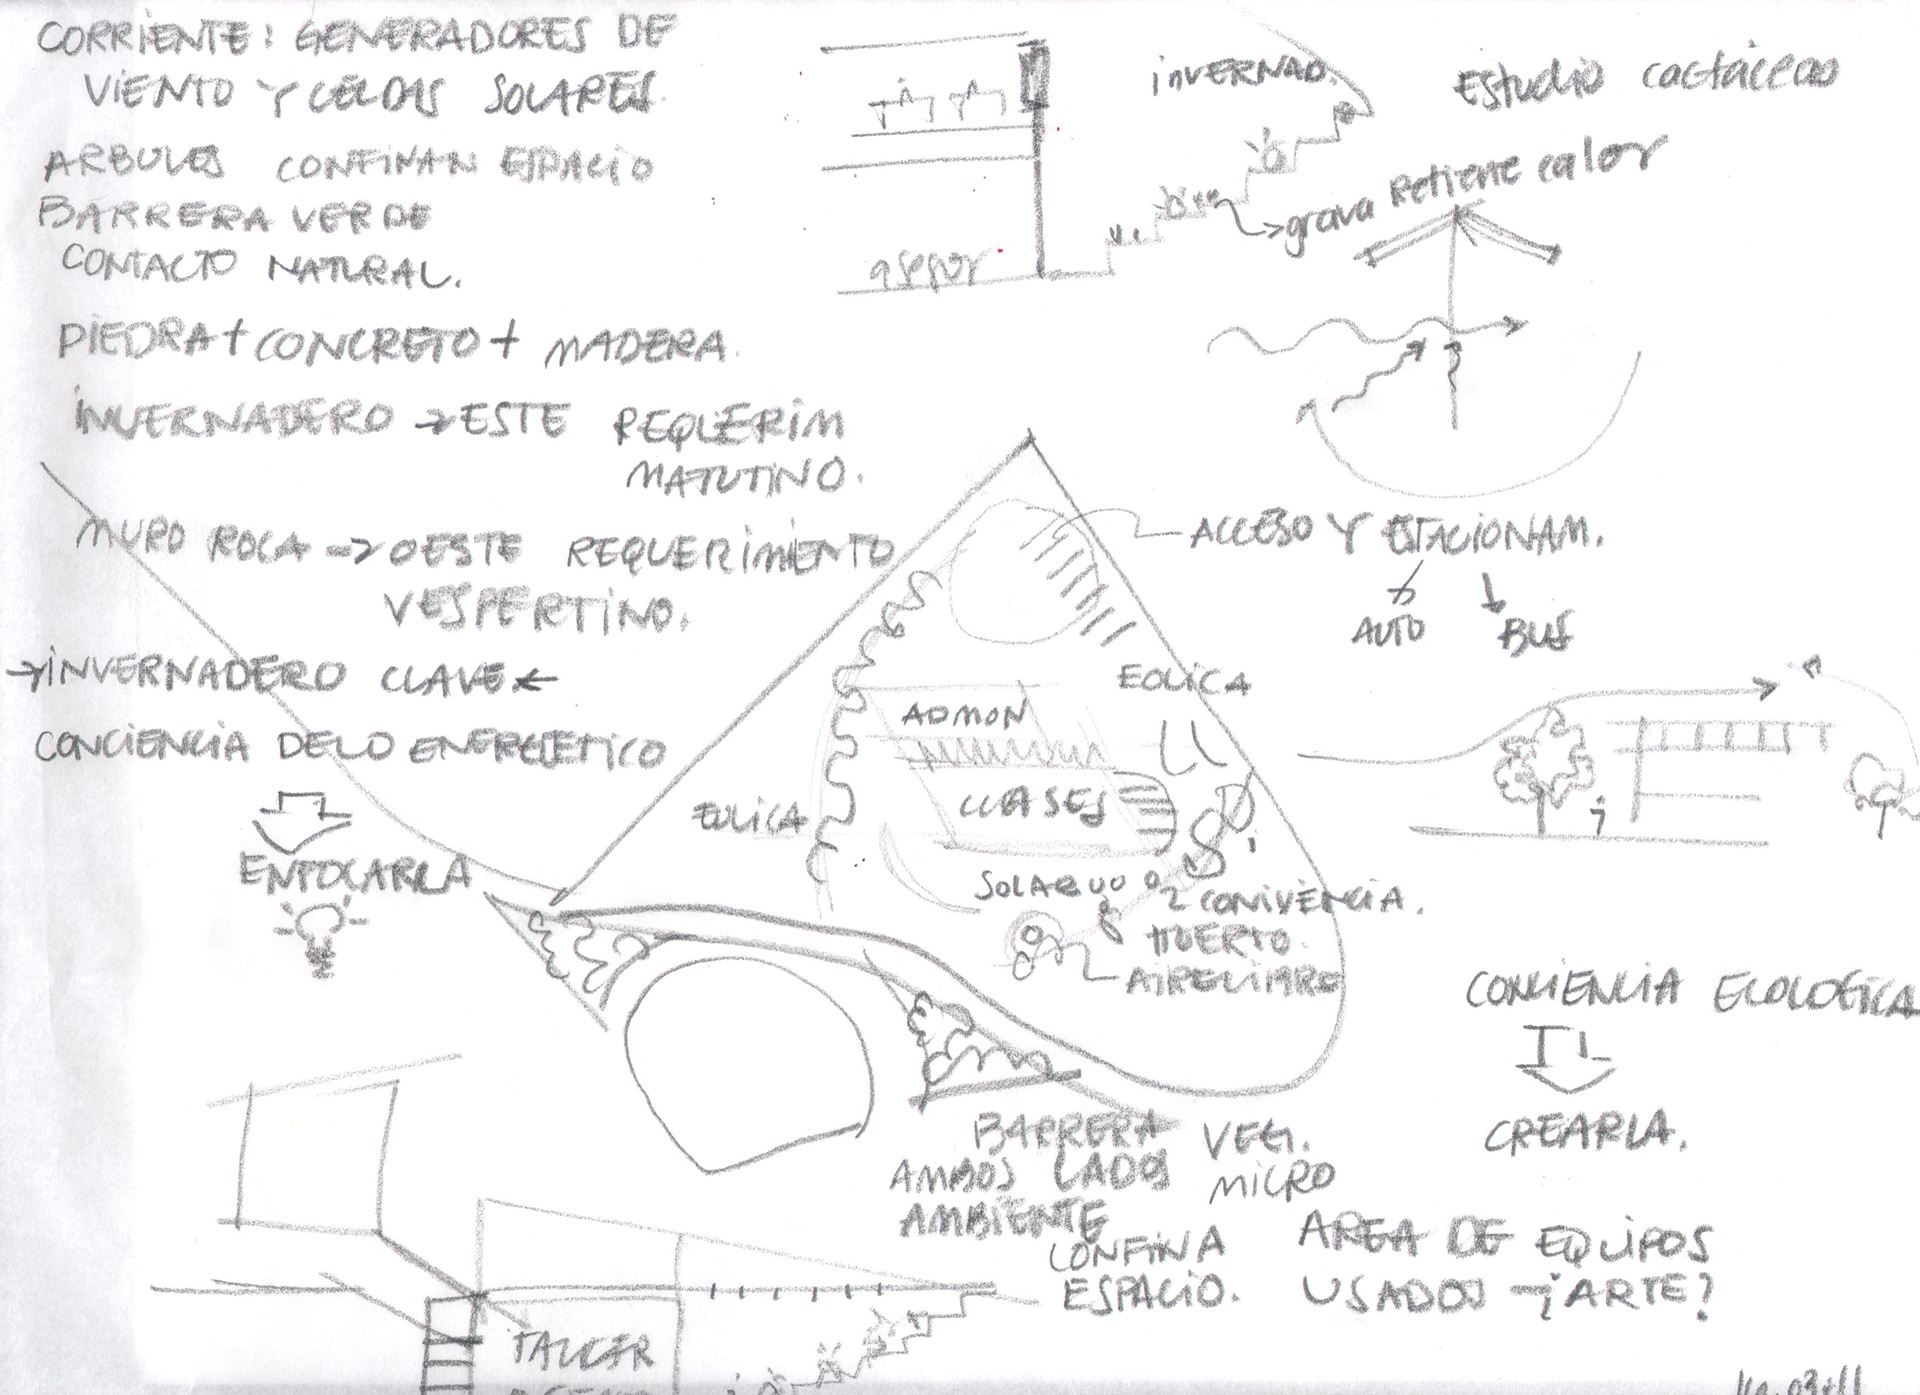 CORRIENTE: GENERADORES DE
VIENTO Y CELDAS SOLARES.
ARBOLES CONFINAN ESPACIO
BARRERA VERDE
CONTACTO NATURAL.
PIEDRA + CONCRETO + MADERA.
INVERNADERO → ESTE REQUERIM
MATUTINO.
MURO ROCA → OESTE REQUERIMIENTO
VESPERTINO.
→ INVERNADERO CLAVE ←
CONCIENCIA DE LO ENERGETICO
ENFOCARLA
asesor
inVERNAD.
Estudio cactáceas
→ grava Retiene calor
ACCESO Y ESTACIONAM.
AUTO
BUS
EOLICA
ADMON
CLASES
EOLICA
SOLAR
CONIVENCIA.
HUERTO.
AIRE LIBRE
BARRERA VEG.
AMBOS LADOS MICRO
AMBIENTE
CONFINA
ESPACIO.
CONCIENCIA ECOLOGICA
CREARLA.
AREA DE EQUIPOS
USADOS → ¿ARTE?
TALLER